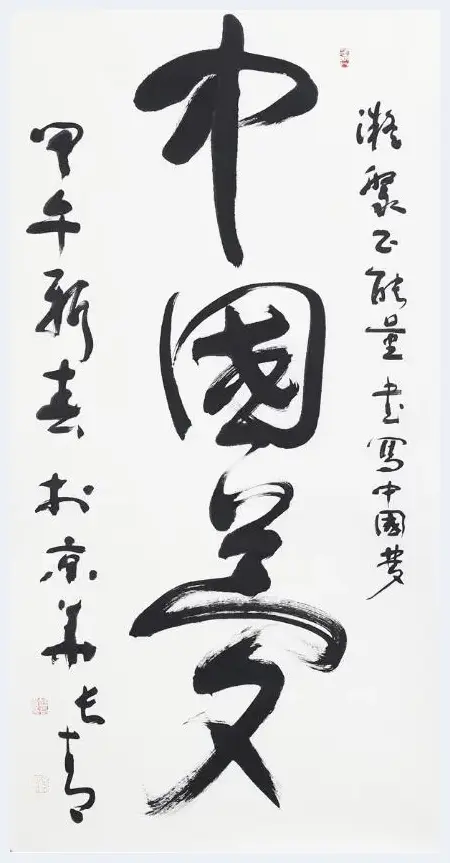 凝聚正能量書寫中國夢
中國夢
甲午新春於京華長青